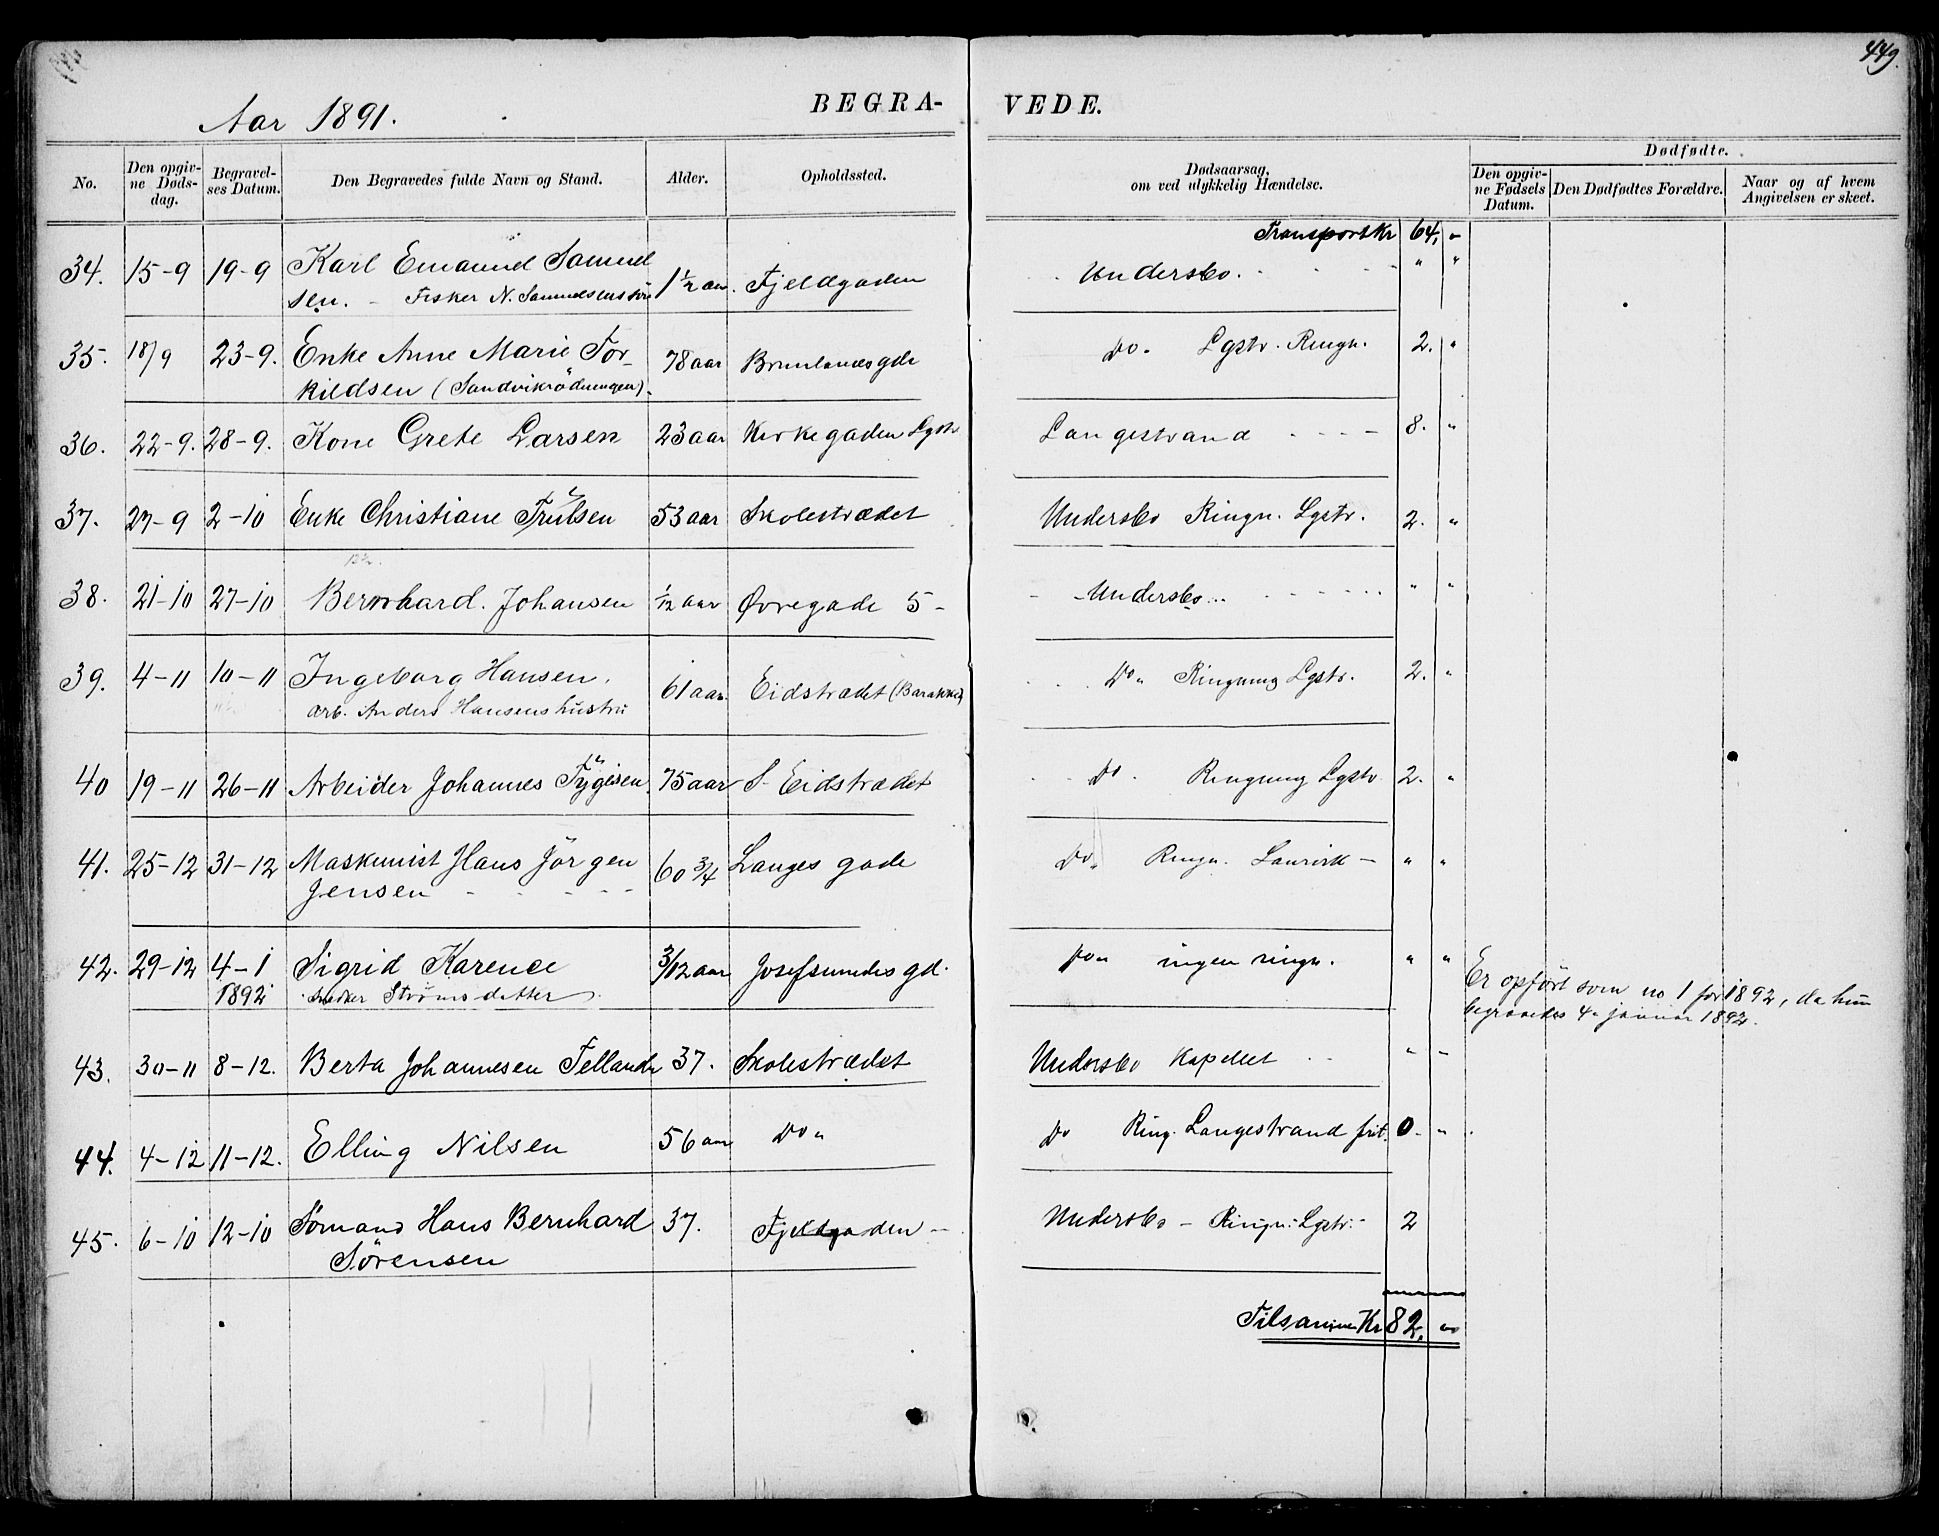 449.
Aar 1891.
BEGRA-
VEDE.
No.
Den opgiv-
ne Døds-
dag.
Begravel-
ses Datum.
Den Begravedes fulde Navn og Stand.
Alder.
Opholdssted.
Dødsaarsag,
om ved ulykkelig Hændelse.
Dødfødte.
Den opgiv-
ne Fødsels
Datum.
Den Dødfødtes Forældre.
Naar og af hvem
Angivelsen er skeet.
Transport Kr 64, "
34. 15-9 19-9 Karl Emanuel Samuel
sen. - Fisker N. Samuelsens sön 1 1/2 aar. Fjeldgaden Undersbo. " "
35. 18/9 23-9. Enke Anne Marie Tor-
kildsen (Sandvikrödningen). 78 aar Brunlanæsgde Do. Lgstr. Ringn. 2. "
36. 22-9. 28-9. Kone Grete Larsen 23 aar Kirkegaden Lgstr Langestrand - - - - 8. "
37. 27-9 2-10 Enke Christiane Trulsen 53 aar Skolestrædet Undersbo Ringn. Lgstr. 2. "
38. 21-10 27-10 Bernhard. Johansen 1/12 aar Øvregade 5- - Undersbo... " "
39. 4-11 10-11 Ingeborg Hansen.
arb. Anders Hansens hustru 61 aar Eidstrædet (Barakken) Do " Ringning Lgstr. 2. "
40 19-11 26-11 Arbeider Johannes Tygesen 75 aar S. Eidstrædet Do. Ringning Lgstr 2. "
41. 25-12 31-12 Maskinist Hans Jörgen
Jensen - - - - - 60 3/4 Langes gade Do. Ringn. Laurvik - " "
42. 29-12 4-1
1892 Sigrid Karence
Snedker Strömsdatter 3/12 aar Josefsines gd. Do " ingen ringn. " "
Er opført som no 1 for 1892, da hun
begravedes 4. januar 1892.
43. 30-11 8-12. Berta Johannesen Fellander 37. Skolestrædet Undersbo Kapellet " "
44. 4-12 11-12. Elling Nilsen 56 aar Do " Do Ring. Langestrand frit. 0. "
45. 6-10 12-10 Sömand Hans Bernhard
Sörensen 37. Fjeldgaden - Undersbo - Ringn: Lgstr:- 2
Tilsammen Kr 82, "